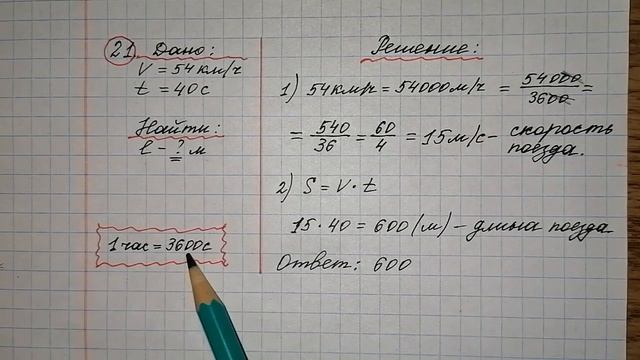 21 Дано:
V = 54 км/ч
t = 40 с
Найти:
l - ? м
1 час = 3600с
Решение:
1) 54 км/ч = 54000 м/ч = 54000/3600 =
= 540/36 = 60/4 = 15 м/с - скорость
поезда.
2) S = V · t
15 · 40 = 600 (м) - длина поезда
Ответ: 600